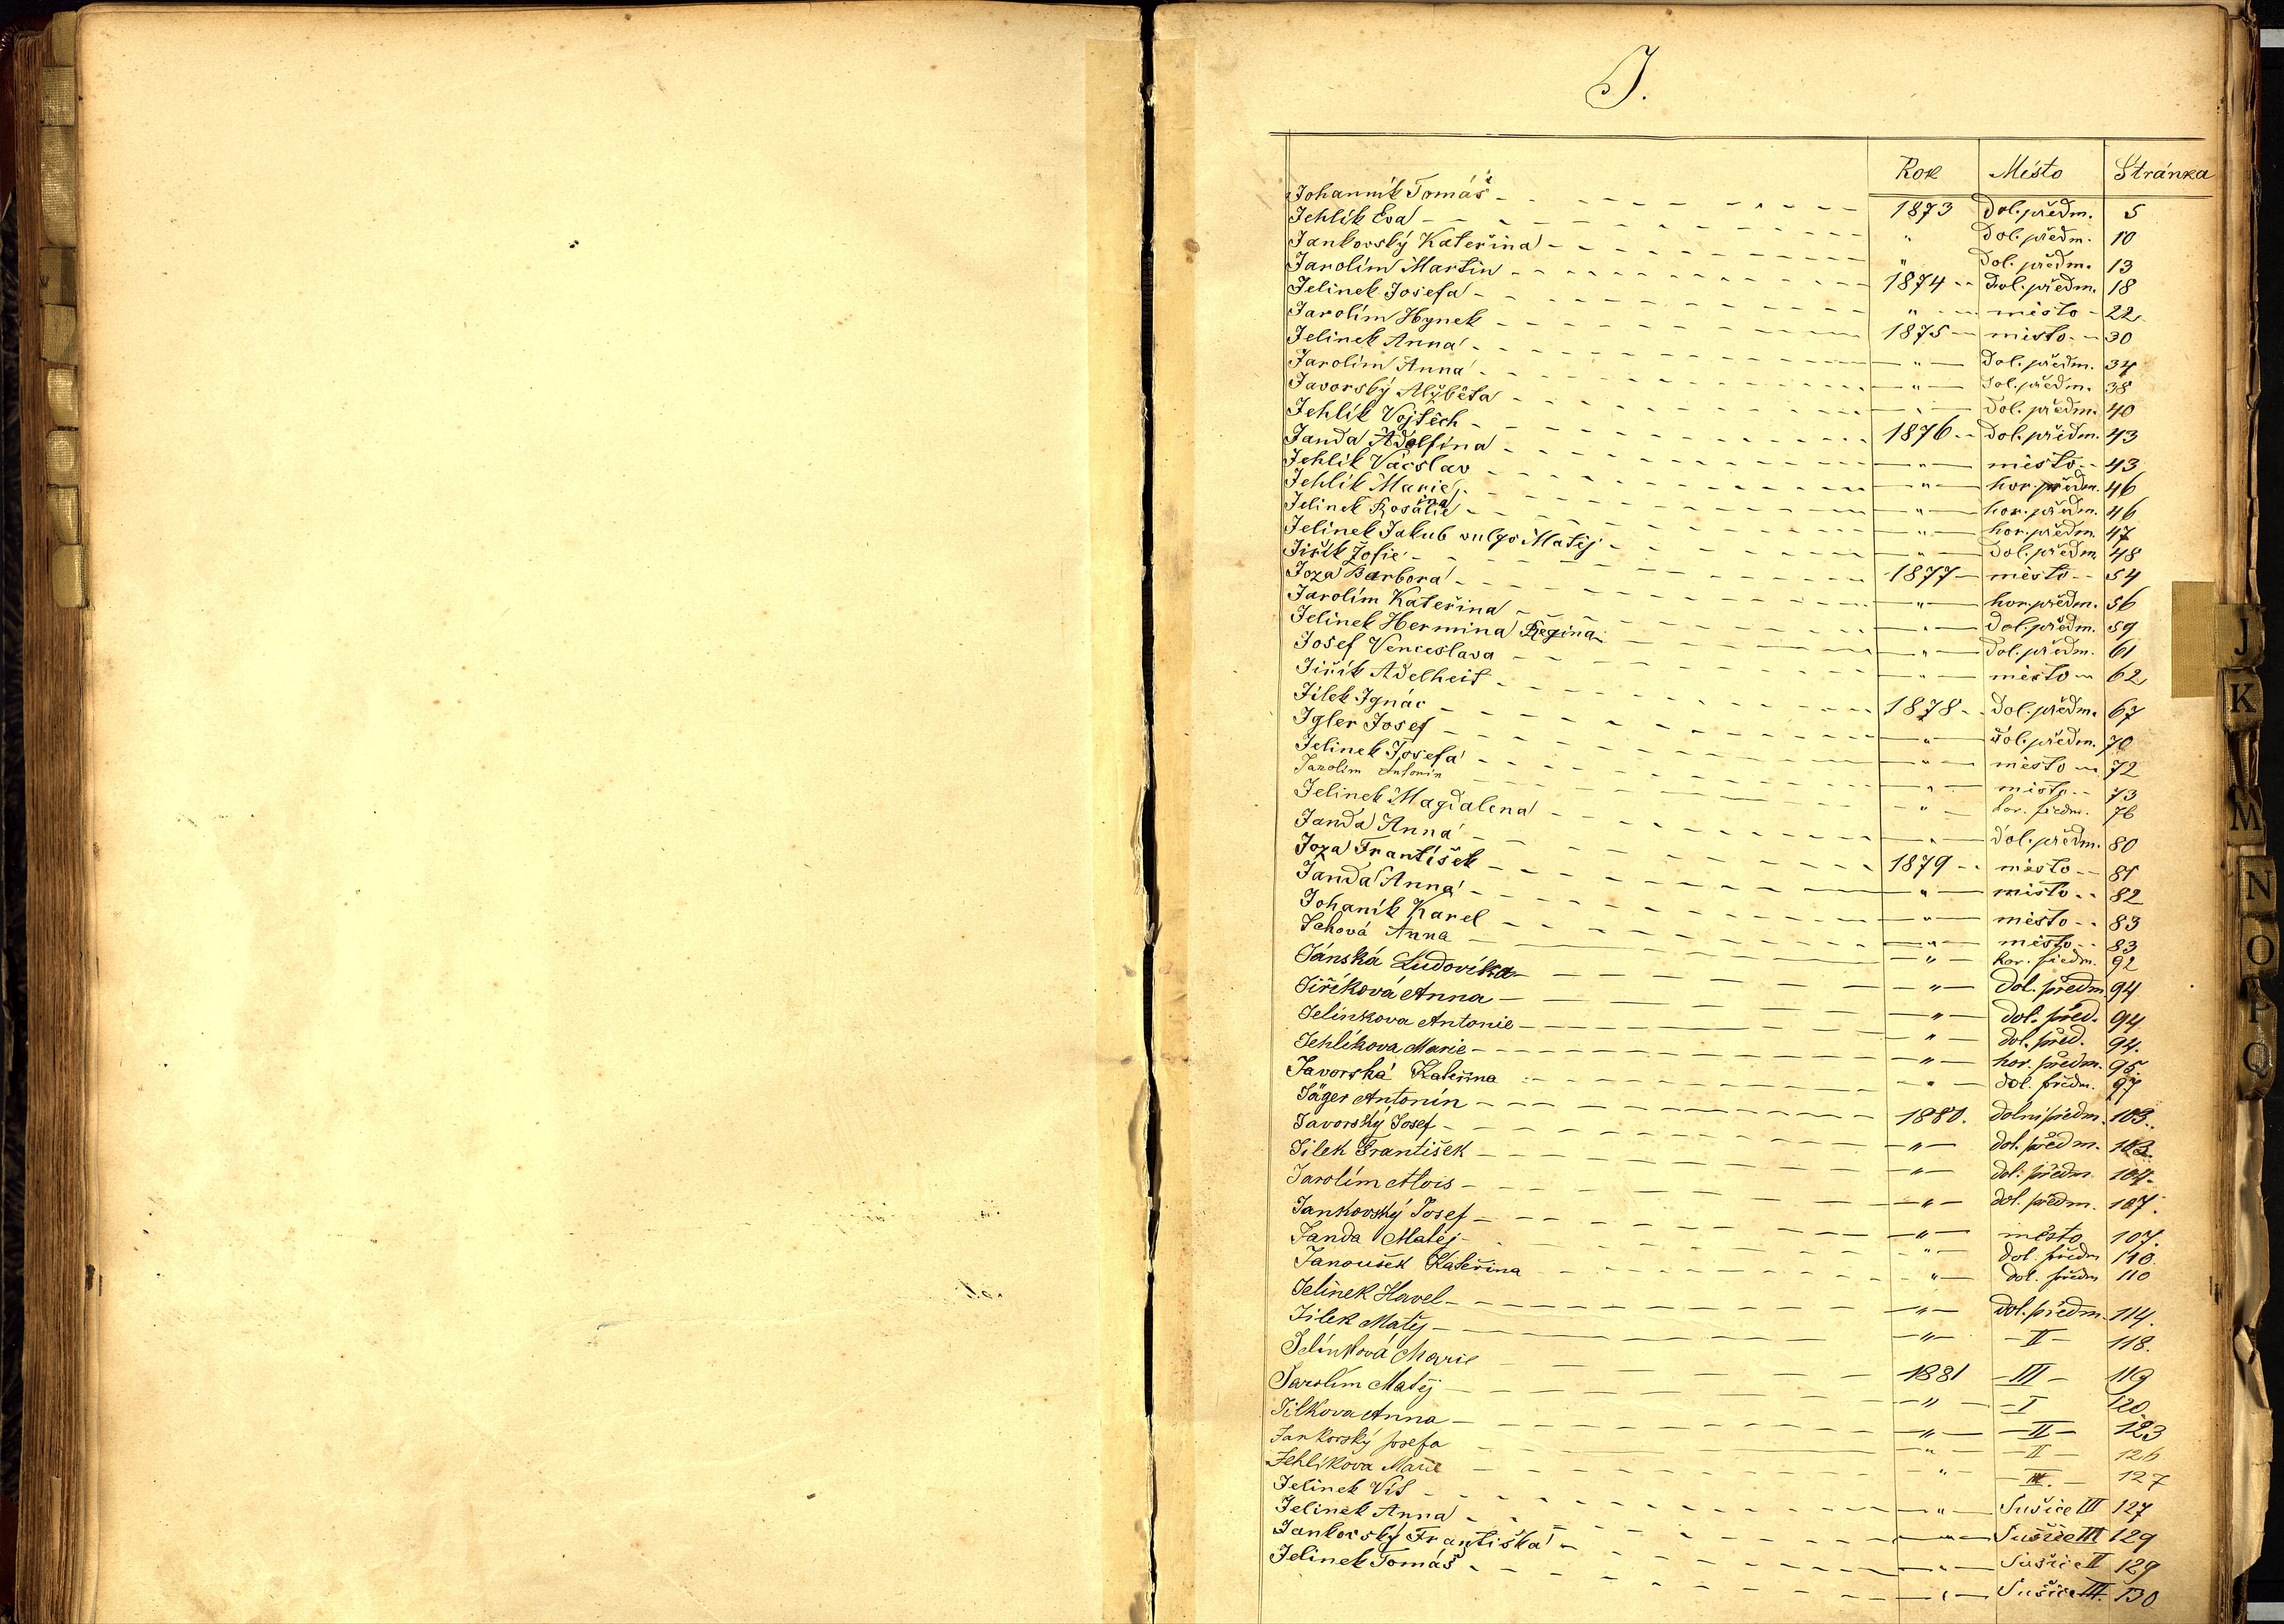 J.
Rok Místo Stránka
Johannik Tomáš 1873 Dol. předm. 5
Jehlík Eva " Dol. předm. 10
Jankovský Kateřina " Dol. předm. 13
Jarolím Martin 1874 Dol. předm. 18
Jelinek Josefa " město 22
Jarolím Hynek 1875 město 30
Jelinek Anna " Dol. předm. 34
Jarolím Anna " Dol. předm. 38
Javorský Alžběta " Dol. předm. 40
Jehlík Vojtěch 1876 Dol. předm. 43
Janda Adolfina " město 43
Jehlík Václav " hor. předm. 46
Jehlík Marie " hor. předm. 46
Jelinek Rosalie ina " hor. předm. 47
Jelinek Jakub vulgo Matěj " Dol. předm. 48
Jiřík Žofie 1877 město 54
Joza Barbora " hor. předm. 56
Jarolím Kateřina " Dol. předm. 59
Jelinek Hermina Regina " Dol. předm. 61
Josef Venceslava " město 62
Jiřík Adelheit 1878 Dol. předm. 67
Jílek Ignác " Dol. předm. 70
Igler Josef " město 72
Jelinek Josefa " město 73
Jarolím Antonín " hor. předm. 76
Jelinek Magdalena " Dol. předm. 80
Janda Anna 1879 město 81
Joza František " město 82
Janda Anna " město 83
Johanik Karel " město 83
Anna " hor. předm. 92
Jánská Ludovika " Dol. předm. 94
Jiříková Anna " Dol. před. 94
Jelínkova Antonie " Dol. před. 94.
Jehlíkova Marie " hor. předm. 95.
Javorská Kateřina " Dol. předm. 97
Jäger Antonín 1880. Dolní předm. 103.
Javorský Josef " Dol. předm. 103.
Jilek František " Dol. předm. 104.
Jarolím Alois " Dol. předm. 107.
Jankovský Josef " město 107.
Janda Matěj " Dol. předm 110.
Janoušek Kateřina " Dol. předm 110
Jelinek Havel " Dol. předm. 114.
Jilek Matěj " II 118.
Jelínková Marie 1881 III 119
Jarolím Matěj " I 120
Jilkova Anna " II 123
Jankovský Josefa " II 126
Jehlíkova Marie " III. 127
Jelinek Vít " Sušice III 127
Jelinek Anna " Sušice III 129
Jankovský Františka " Sušice II 129
Jelinek Tomáš " Sušice III. 130
J
K
M
N
O
P
Q